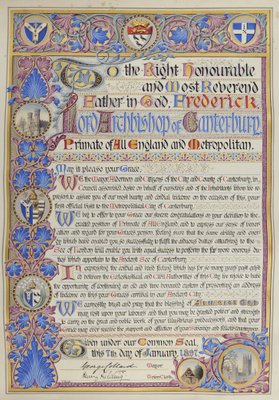 To the Right Honourable
and Most Reverend
Father in God, Frederick,
Lord Archbishop of Canterbury,
Primate of All England and Metropolitan.
May it please your Grace,
We the Mayor, Aldermen and Citizens of the City and County of Canterbury, in
Council assembled, desire on behalf of ourselves and of the Inhabitants whom we re-
present to assure you of our most hearty and cordial welcome on the occasion of this your
first official visit to the Metropolitical City of Canterbury.
We beg to offer to your Grace our sincere congratulations on your elevation to the
exalted position of Primate of All England, and to express our sense of
and regard for your Grace's person, feeling sure that the same ability and
by which have enabled you so successfully to fulfil the arduous duties attaching to the
See of London will enable you with equal success to perform the far more onerous du-
ties which appertain to the Ancient See of Canterbury.
In expressing the cordial and kindly feeling which has for so many years past exist-
ed between the Ecclesiastical and Civil Authorities of this City, we rejoice to have
the opportunity of confirming an old and time honoured custom of presenting an address
of welcome on this your Grace's arrival in our Ancient City.
We earnestly trust and pray that the blessing of Almighty God
may rest upon your labours and that you may be granted power and strength
to carry on the great and noble work of your illustrious predecessors and that your
Grace may ever receive the support and affection of your
Given under our Common Seal,
this 7th day of January 1897.
George Collard
Mayor
Henry Fielding
Town Clerk